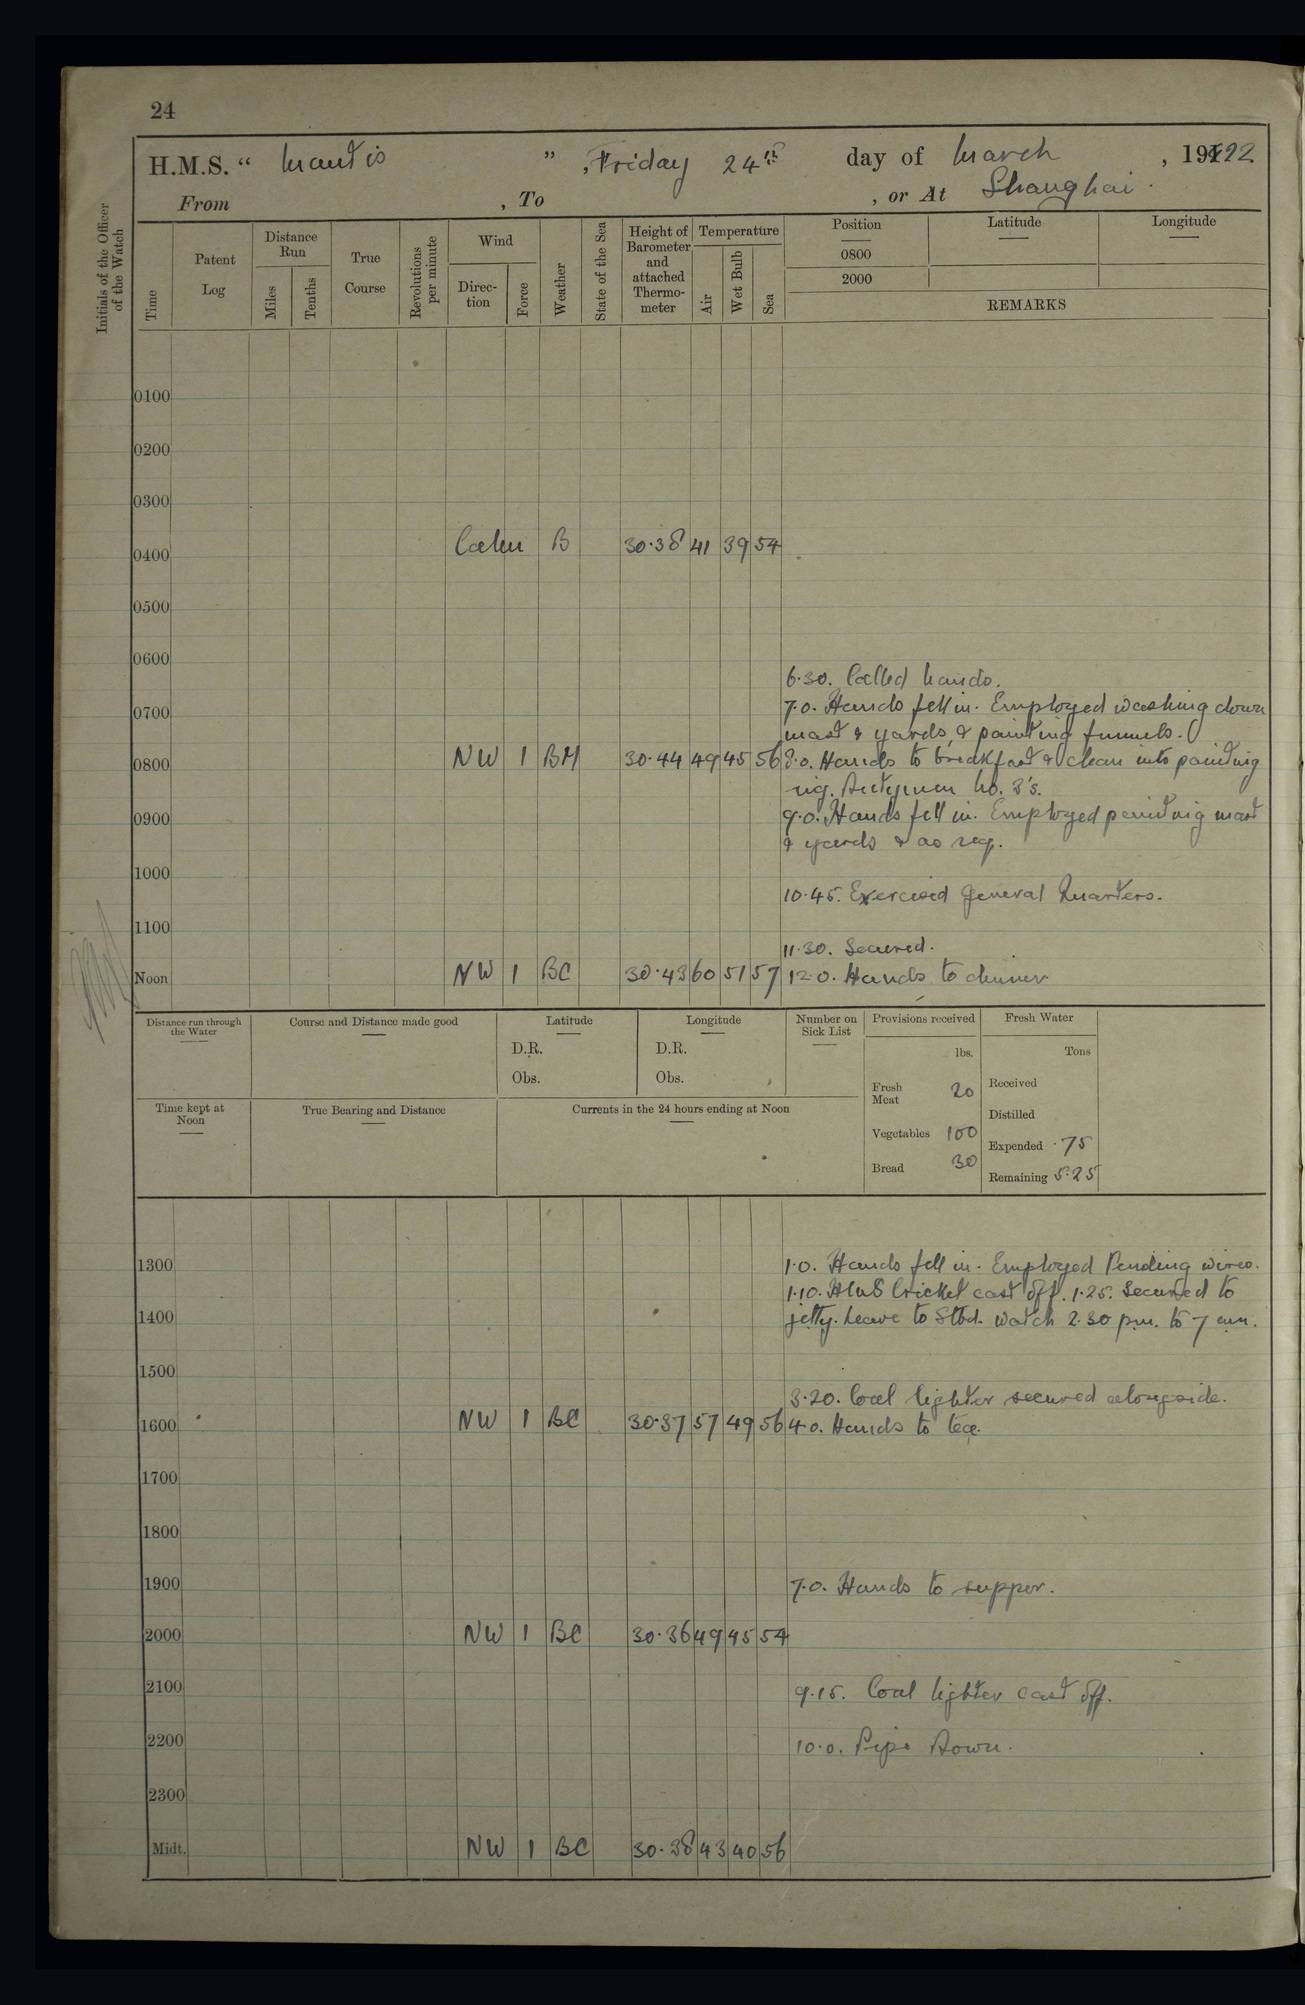 24
H.M.S. “ Mantis ” , Friday 24th day of March , 1922
From , To , or At Shanghai.
Initials of the Officer of the Watch
Time
Patent Log
Distance Run
Miles
Tenths
True Course
Revolutions per minute
Wind
Direc-tion
Force
Weather
State of the Sea
Height of Barometer and attached Thermo-meter
Temperature
Air
Wet Bulb
Sea
Position Latitude Longitude
0800
2000
REMARKS
0100
0200
0300
0400 Calm B 30.38 41 39 54
0500
0600
6.30. Called hands.
0700 7.0. Hands fell in. Employed washing down
mast & yards, & painting funnels.
0800 NW 1 BM 30.44 49 45 56 8.0. Hands to breakfast & clean into painting
rig. Dutymen No. 3's.
0900 9.0. Hands fell in. Employed painting mast
& yards & as req.
1000
10.45. Exercised General Quarters.
1100
11.30. Secured.
Noon NW 1 BC 30.43 60 51 57 12.0. Hands to dinner
Distance run through the Water
Course and Distance made good
Latitude
D.R.
Obs.
Longitude
D.R.
Obs.
Number on Sick List
Provisions received
lbs.
Fresh Meat 20
Vegetables 100
Bread 30
Fresh Water
Tons
Received
Distilled
Expended .75
Remaining 5.25
Time kept at Noon
True Bearing and Distance
Currents in the 24 hours ending at Noon
1300 1.0. Hands fell in. Employed Rending wires.
1.10. HMS Cricket cast off. 1.25. Secured to
1400 jetty. Leave to Stbd. watch 2.30 pm. to 7 am.
1500
3.20. Coal lighter secured alongside.
1600 NW 1 BC 30.37 57 49 56 4.0. Hands to tea.
1700
1800
1900 7.0. Hands to supper.
2000 NW 1 BC 30.36 49 45 54
2100 9.15. Coal lighter cast off.
2200 10.0. Pipe Down.
2300
Midt. NW 1 BC 30.38 43 40 56